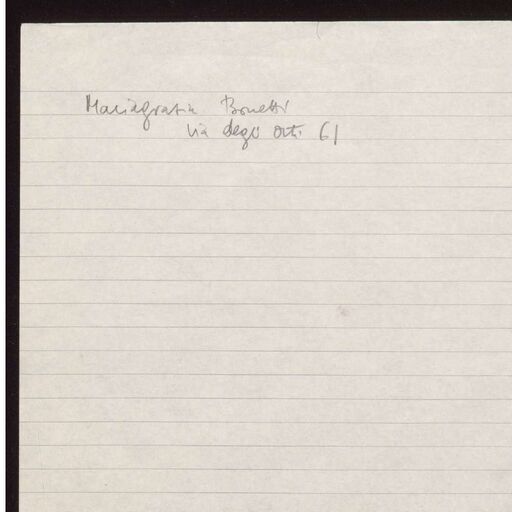 Mariagrazia Bonetti
Via degli Orti 61